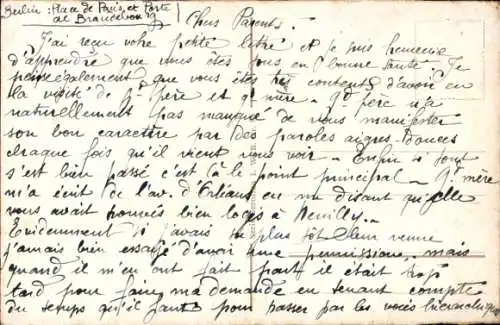 Berlin : Place de Paris, et Porte
de Brandebourg
Chers Parents.
J'ai reçu votre petite lettre et je suis heureuse
d'apprendre que vous êtes tous en bonne santé. Je
pense également que vous êtes très contents d'avoir eu
la visite de gd père et gd mère. Gd père n'a
naturellement pas manqué de vous manifester
son bon caractère par des paroles aigres-douces
chaque fois qu'il vient vous voir. Enfin si tout
s'est bien passé c'est là le point principal. Gd mère
m'a écrit de l'av. d'Orléans en me disant qu'elle
vous avait trouvés bien logés à Neuilly..
Evidemment si j'avais su plus tôt leur venue
j'amais bien essayé d'avoir une permission, mais
quand il m'en ont fait part il était trop
tard pour faire ma demande en tenant compte
du temps qu'il faut pour passer par les voies hiérarchiques